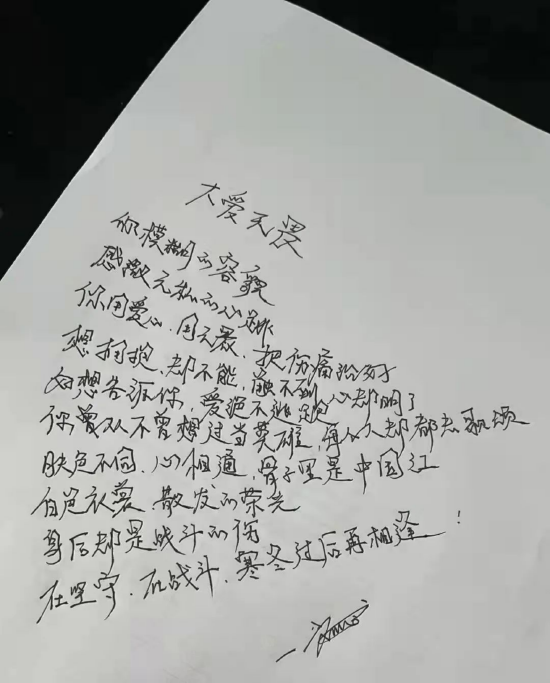 大爱无畏
你模糊的容貌
感激无私的心跳
你用爱心,用无畏,把伤痛治好
想拥抱,却不能,触不到心却明了
好想告诉你,爱绝不逃跑
你曾从不曾想过当英雄,每个人却都为你歌颂
肤色不同,心相通,骨子里是中国红
白色衣裳,散发的荣光
身后却是战斗的伤
在坚守,在战斗,寒冬过后再相逢!